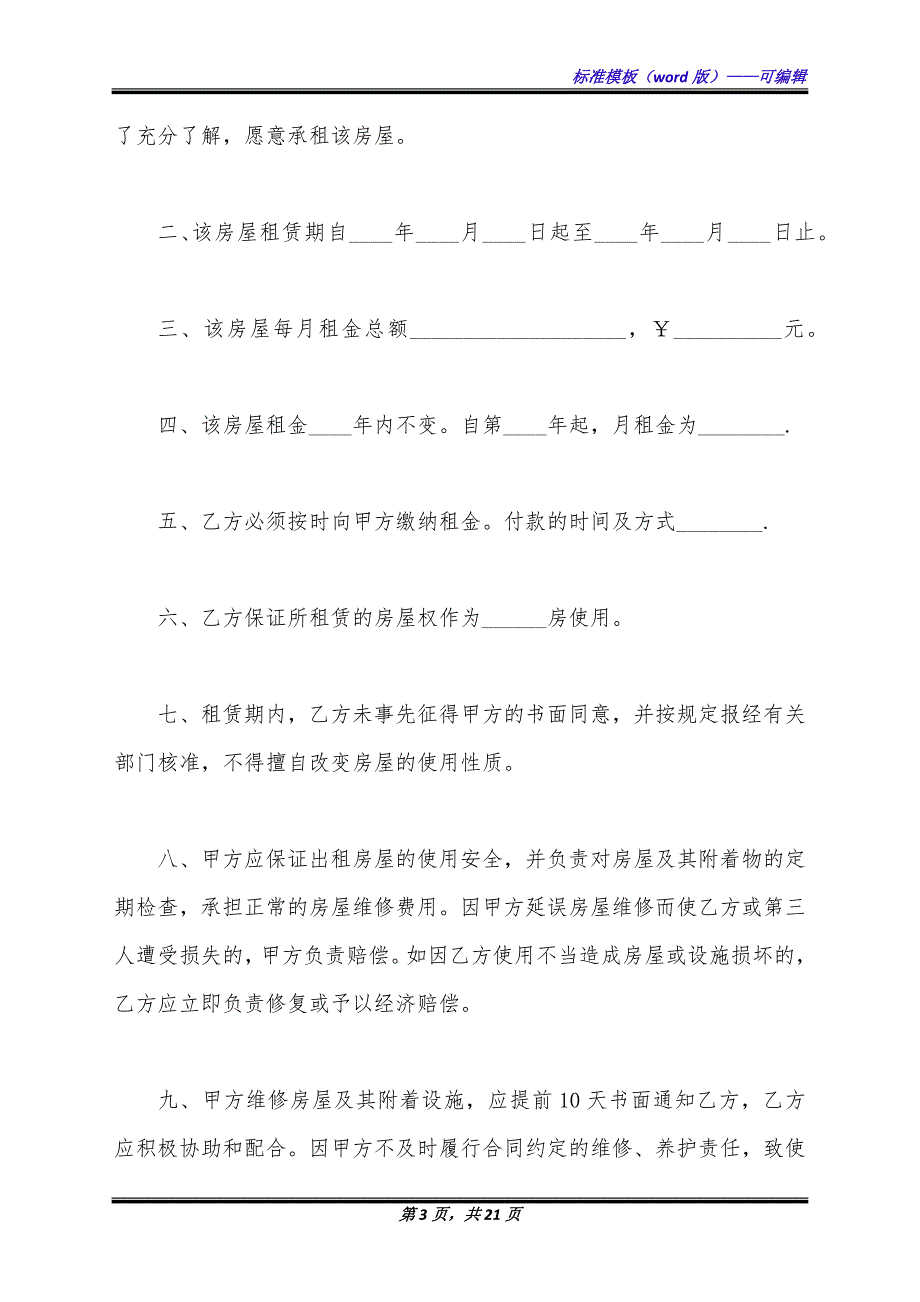 标准模板（word 版）——可编辑
了充分了解，愿意承租该房屋。
二、该房屋租赁期自____年____月____日起至____年____月____日止。
三、该房屋每月租金总额____________________，￥__________元。
四、该房屋租金____年内不变。自第____年起，月租金为________.
五、乙方必须按时向甲方缴纳租金。付款的时间及方式________.
六、乙方保证所租赁的房屋权作为______房使用。
七、租赁期内，乙方未事先征得甲方的书面同意，并按规定报经有关
部门核准，不得擅自改变房屋的使用性质。
八、甲方应保证出租房屋的使用安全，并负责对房屋及其附着物的定
期检查，承担正常的房屋维修费用。因甲方延误房屋维修而使乙方或第三
人遭受损失的，甲方负责赔偿。如因乙方使用不当造成房屋或设施损坏的，
乙方应立即负责修复或予以经济赔偿。
九、甲方维修房屋及其附着设施，应提前 10 天书面通知乙方，乙方
应积极协助和配合。因甲方不及时履行合同约定的维修、养护责任，致使
第 3 页，共 21 页